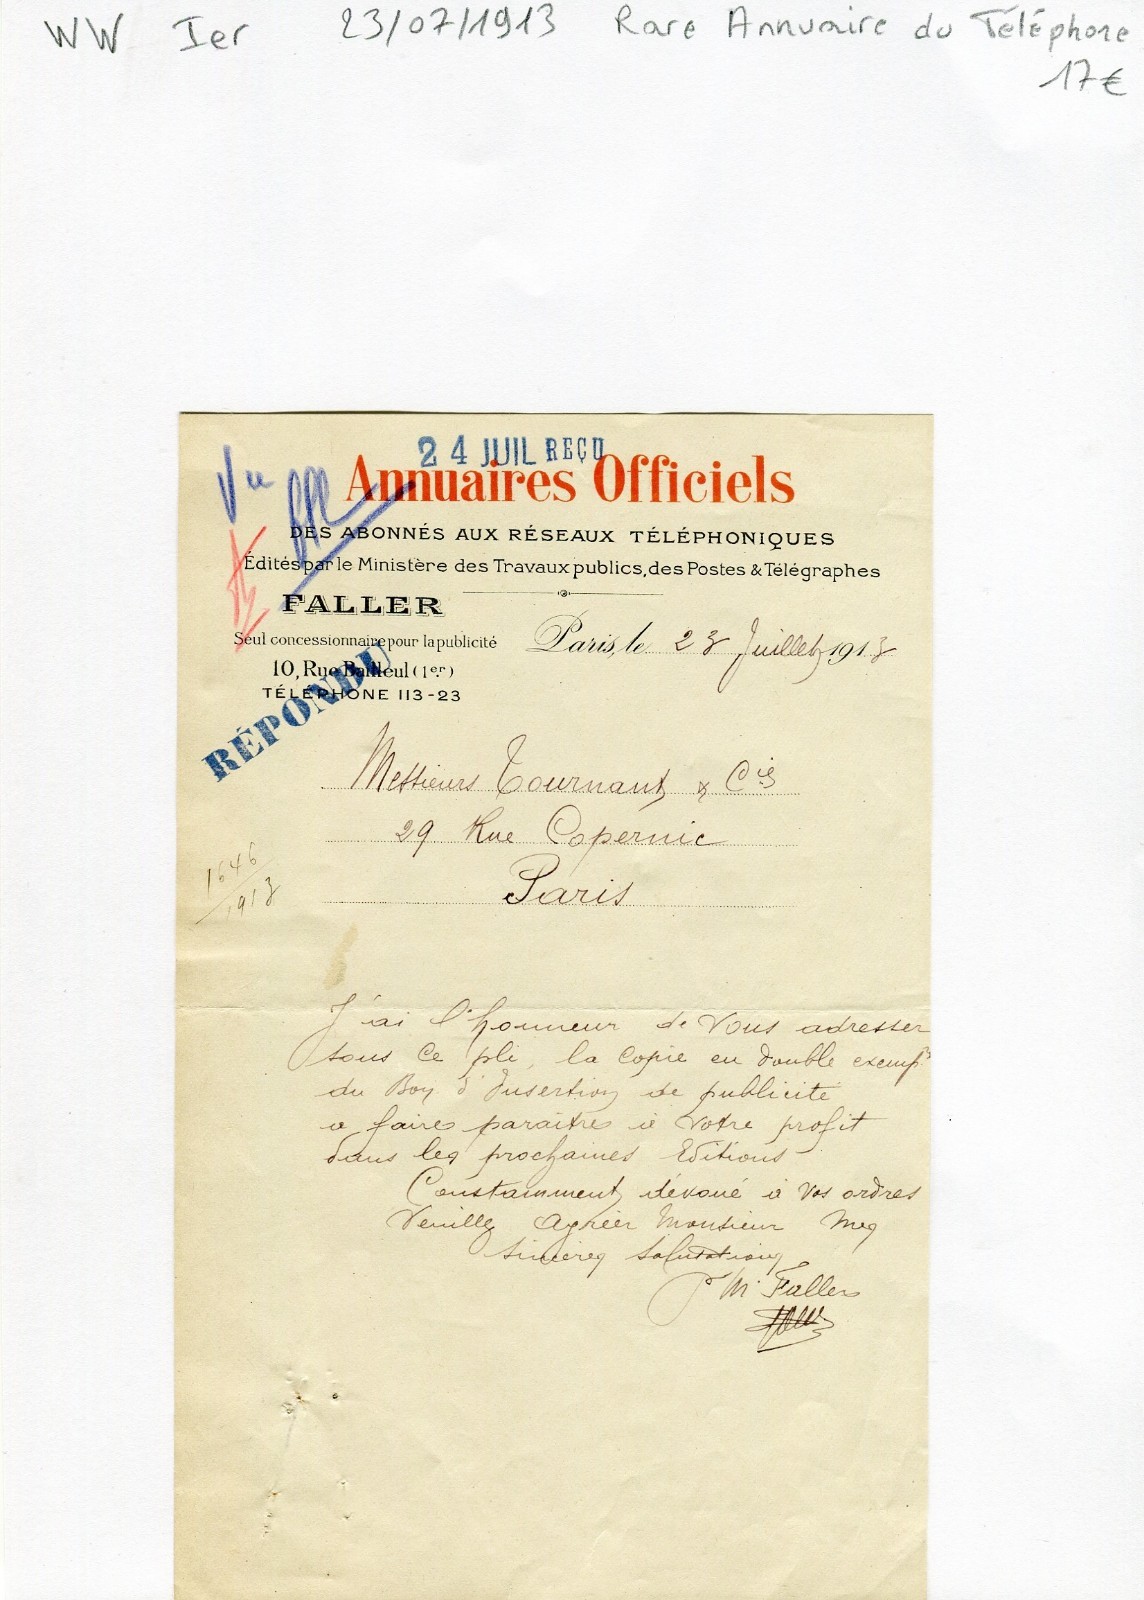 WW Ier 23/07/1913 Rare Annuaire du Téléphone
17€
24 JUIL REÇU
Vu
Annuaires Officiels
DES ABONNÉS AUX RÉSEAUX TÉLÉPHONIQUES
Édités par le Ministère des Travaux publics, des Postes & Télégraphes
FALLER
Seul concessionnaire pour la publicité
10, Rue Bailleul (1er)
TÉLÉPHONE 113-23
Paris, le 23 Juillet 1913
RÉPONDU
Messieurs Tournant & Cie
29 Rue Copernic
Paris
1646
1913
J'ai l'honneur de Vous adresser
sous ce pli, la Copie en double exempres
du Bon d'Insertion de publicité
a faire paraître à Votre profit
dans les prochaines Editions
Constamment dévoué à Vos ordres
Veuillez Agréer Monsieur Mes
Sincères Salutations
P M. Faller